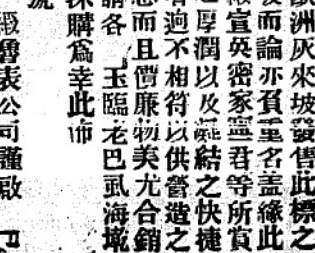 洲灰來坡發售此標之
而論亦負重名盖緣此
宣英密家寧君等所
厚潤以及凝結之快捷
有逈不相符以供營造之
而且價廉物美尤合銷
請各 玉臨老巴虱海墘
採購爲幸此佈
號
緞魯表公司謹啟